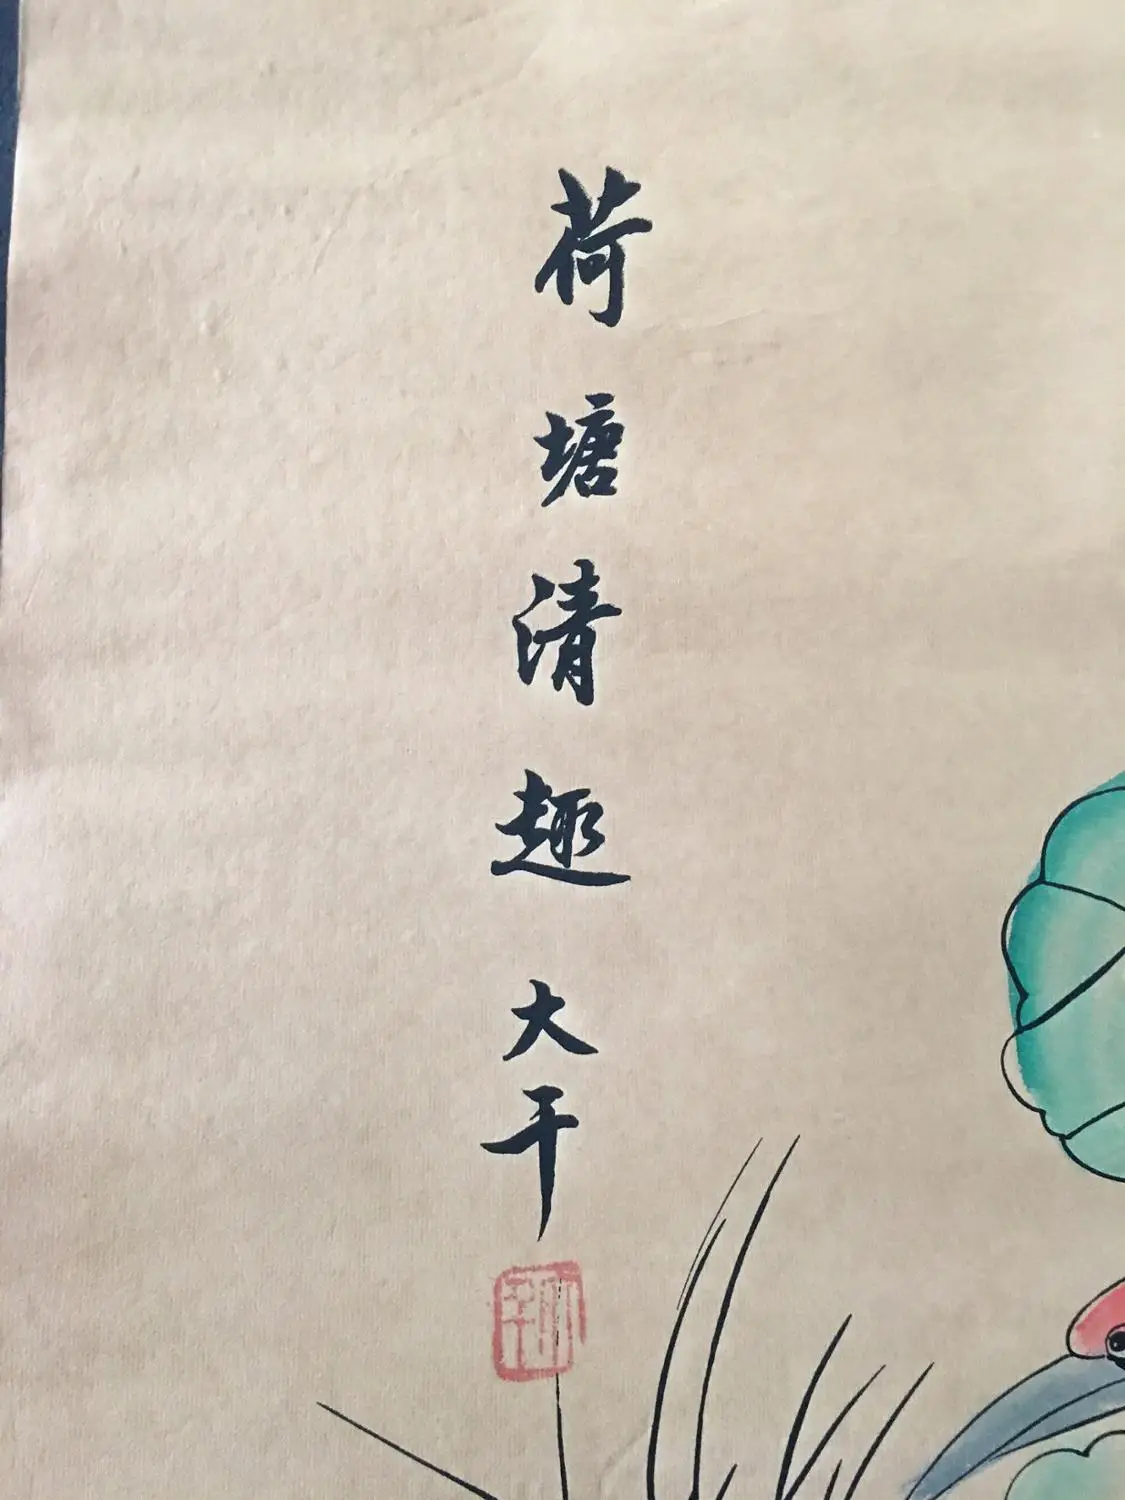 荷塘清趣 大千